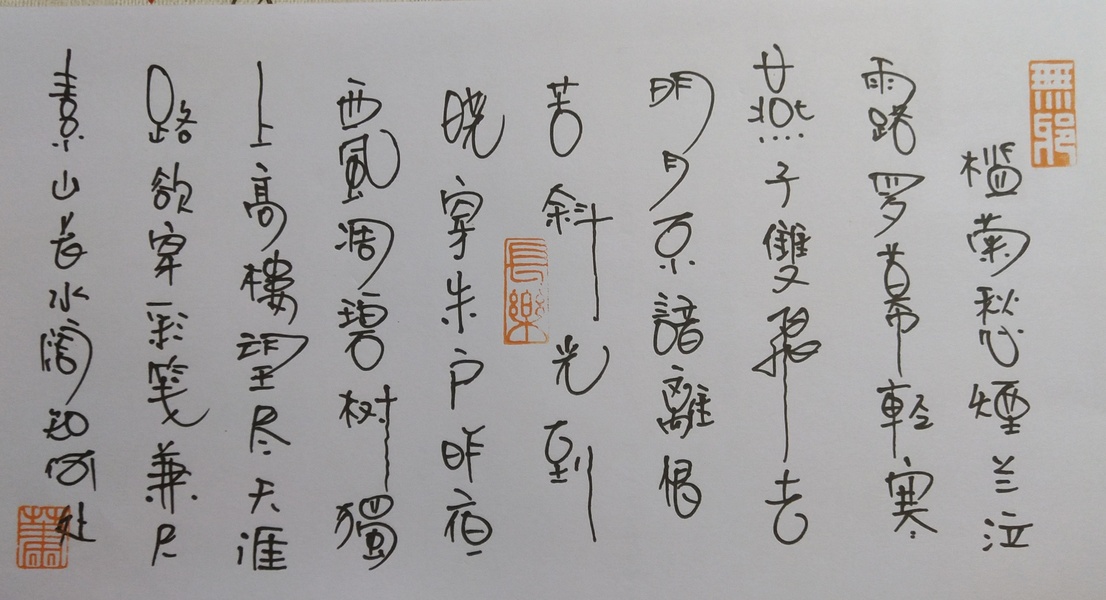 無邪
槛菊愁煙兰泣
露罗幕輕寒
燕子雙飛去
明月不諳離恨
苦斜光到
長樂
晓穿朱户昨夜
西風凋碧树獨
上高樓望尽天涯
路欲寄彩笺兼尺
素山长水阔知何处
蕭